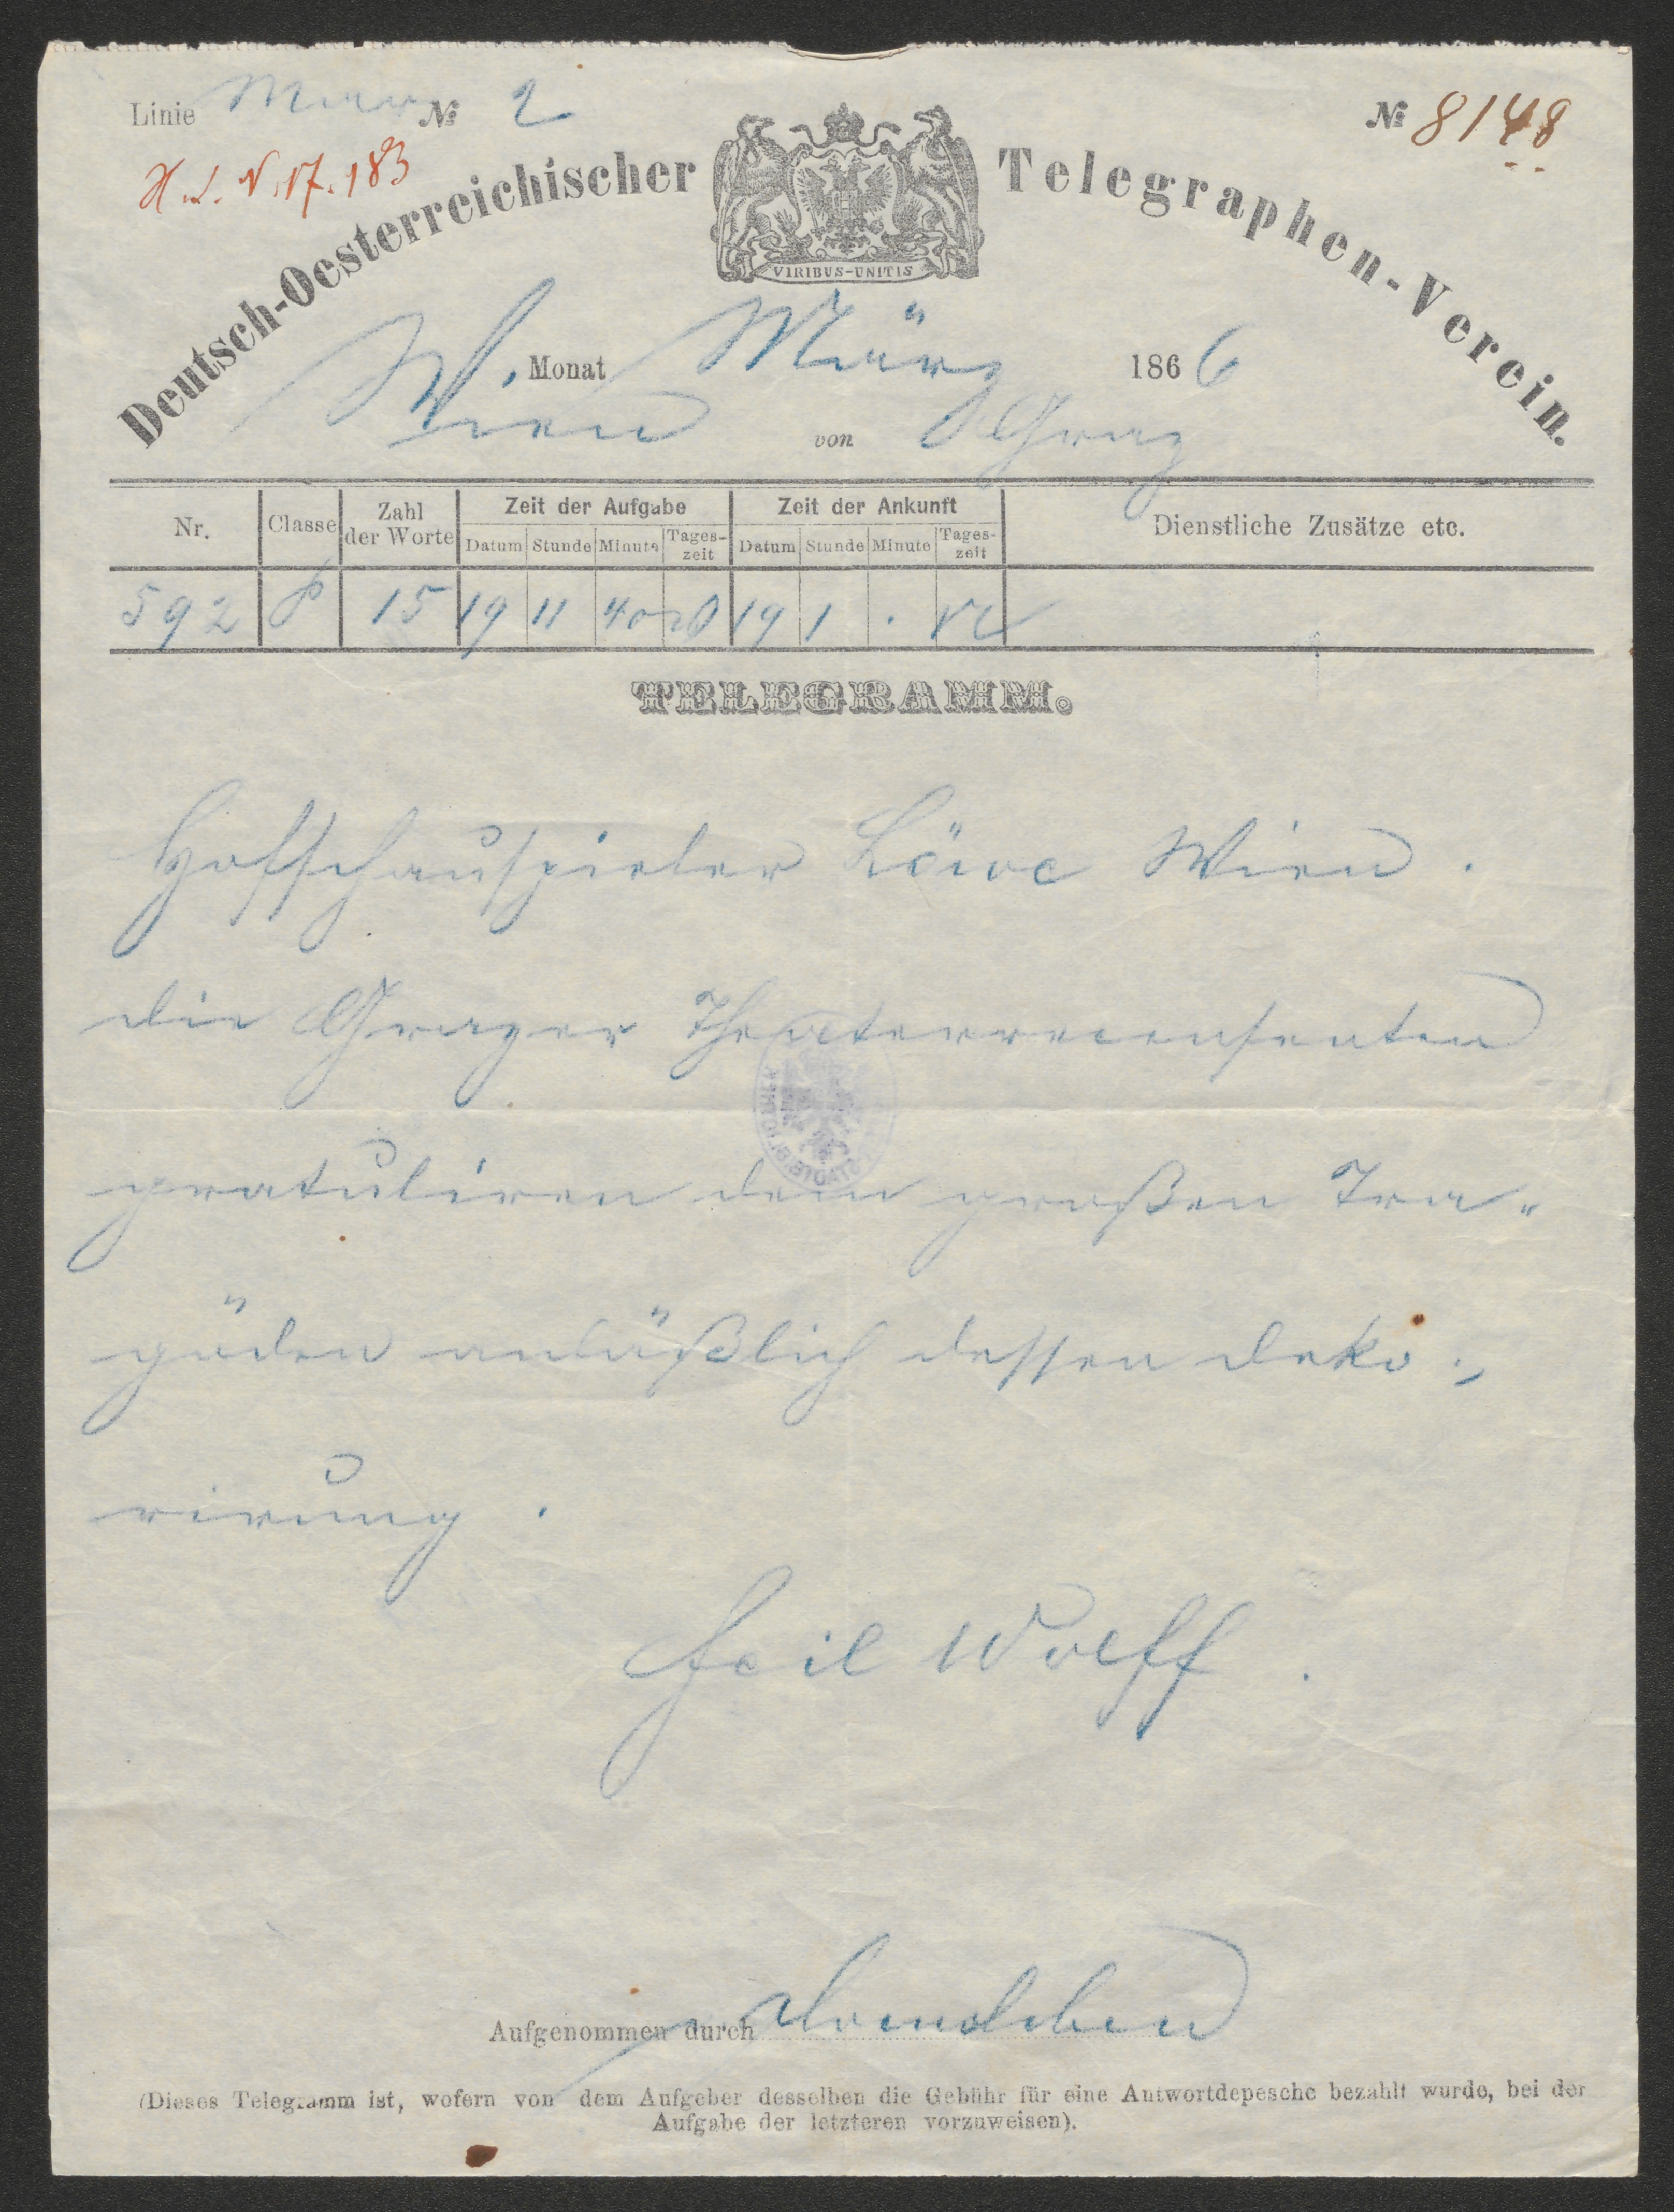 Linie № 2 № 8148
H. I. N. 17.183
Deutsch-Oesterreichischer Telegraphen-Verein.
VIRIBUS-UNITIS
W. Monat März 1866
Wien von Graz
Nr. Classe Zahl der Worte Zeit der Aufgabe Zeit der Ankunft Dienstliche Zusätze etc.
Datum Stunde Minute Tages-zeit Datum Stunde Minute Tages-zeit
592 P 15 19 11 40 19 1 .
TELEGRAMM.
Hofschauspieler Löwe Wien.
die Grazer Theaterrecensenten
gratuliren dem großen Tra-
göden anläßlich dessen deko-
rirung.
Wolff.
Aufgenommen durch
(Dieses Telegramm ist, wofern von dem Aufgeber desselben die Gebühr für eine Antwortdepesche bezahlt wurde, bei der
Aufgabe der letzteren vorzuweisen).